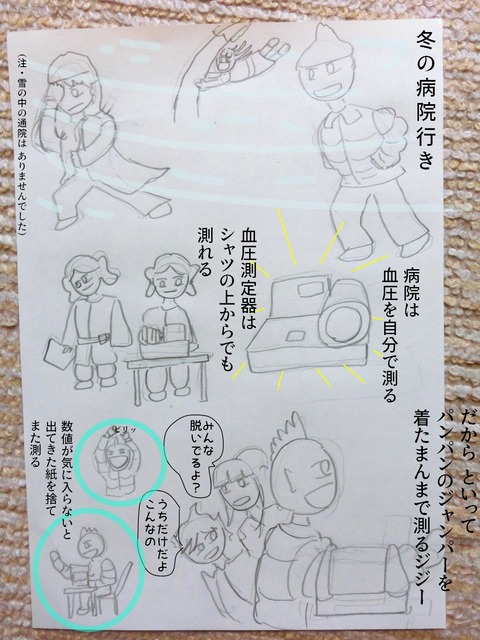 冬の病院行き
（注・雪の中の通院は ありませんでした）
病院は
血圧を自分で測る
血圧測定器は
シャツの上からでも
測れる
だから といって
パンパンのジャンパーを
着たまんまで測るジジー
みんな
脱いでるよ？
うちだけだよ
こんなの
ビリッ
数値が気に入らないと
出てきた紙を捨て
また測る